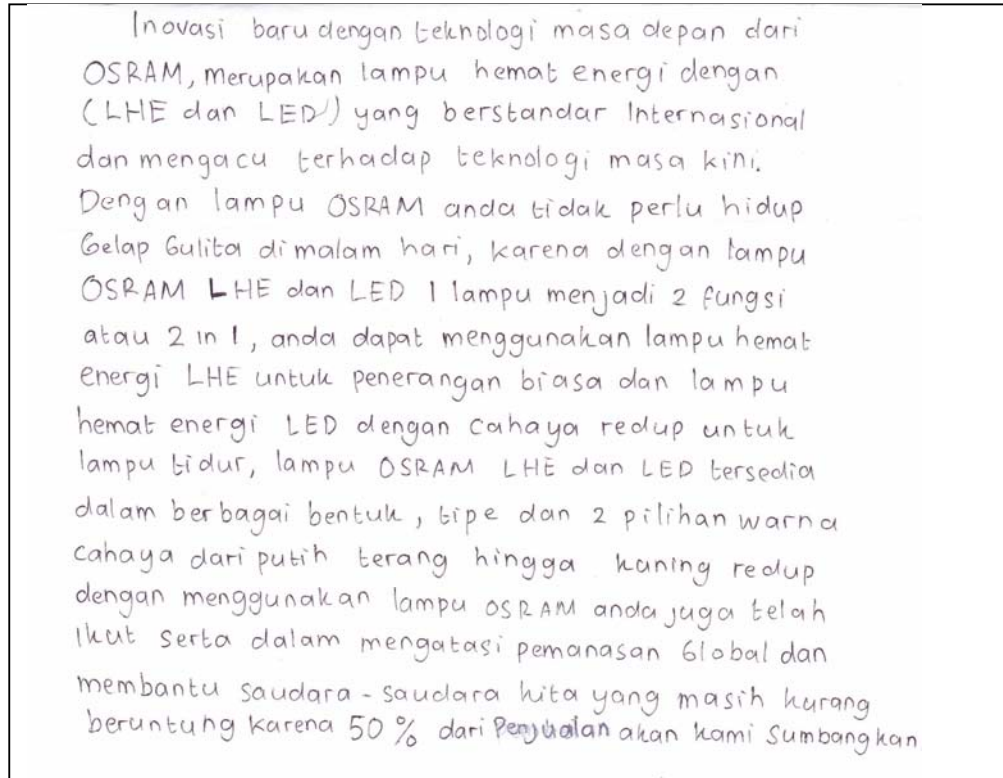 Inovasi baru dengan teknologi masa depan dari
OSRAM, merupakan lampu hemat energi dengan
(LHE dan LED) yang berstandar Internasional
dan mengacu terhadap teknologi masa kini.
Dengan lampu OSRAM anda tidak perlu hidup
Gelap Gulita di malam hari, karena dengan lampu
OSRAM LHE dan LED 1 lampu menjadi 2 fungsi
atau 2 in 1, anda dapat menggunakan lampu hemat
energi LHE untuk penerangan biasa dan lampu
hemat energi LED dengan cahaya redup untuk
lampu tidur, lampu OSRAM LHE dan LED tersedia
dalam berbagai bentuk, tipe dan 2 pilihan warna
cahaya dari putih terang hingga kuning redup
dengan menggunakan lampu OSRAM anda juga telah
ikut serta dalam mengatasi pemanasan Global dan
membantu saudara - saudara kita yang masih kurang
beruntung karena 50 % dari Penjualan akan kami Sumbangkan